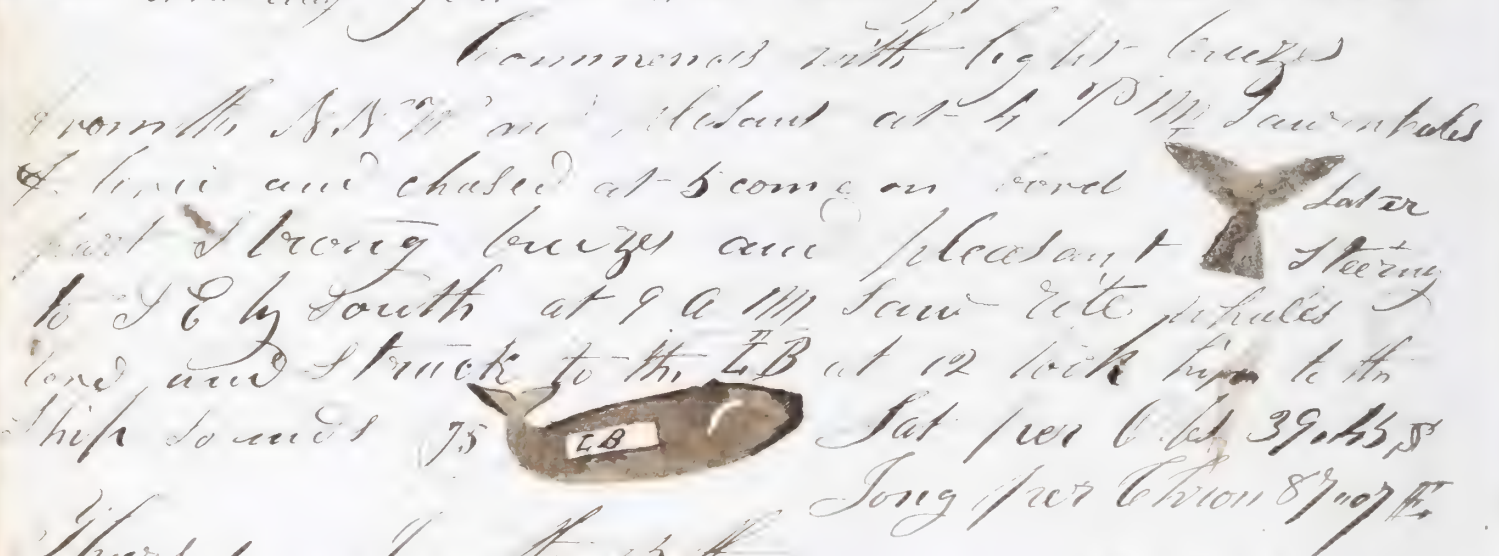 Commences with light breezes
from the N N W and plesant at 4 P M Saw whales
and chased at 5 come on bord
part Strong breezes and pleasant Later Steering
to S E by South at 9 A M Saw rite whales
lord and Struck to the L B at 12 took him to the
Ship So ends 75 L B Lat per Obs 39.45 S
Long per Chron 87"07 E